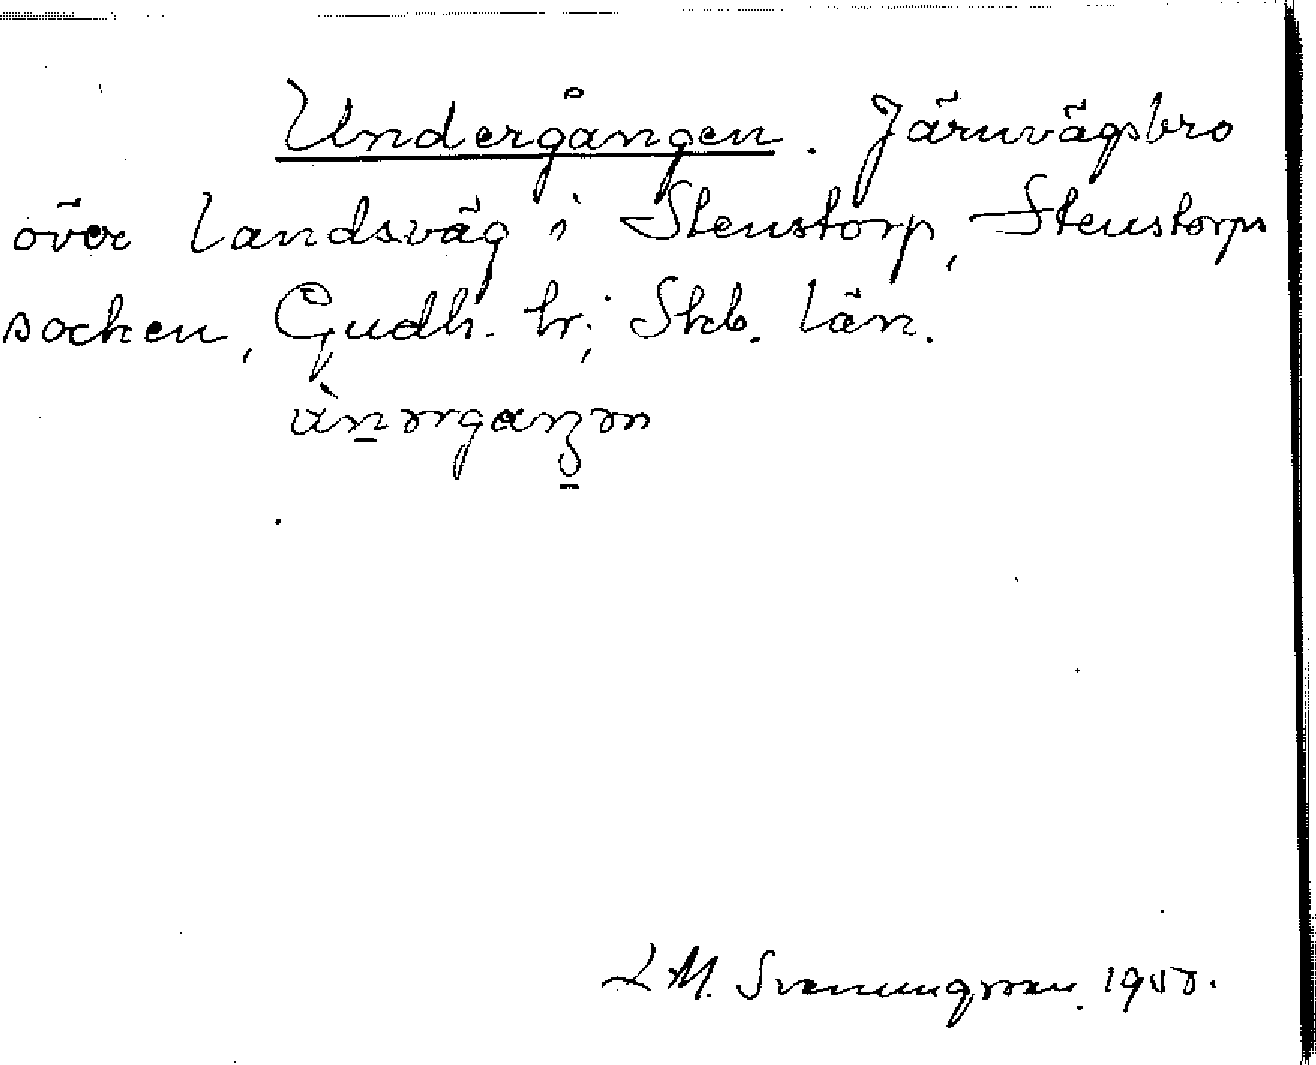 Undergången. Järnvägsbro
över landsväg i Stenstorp, Stenstorps
socken, Gudh. hr; Skb. län.
L M. Svenungsson. 19